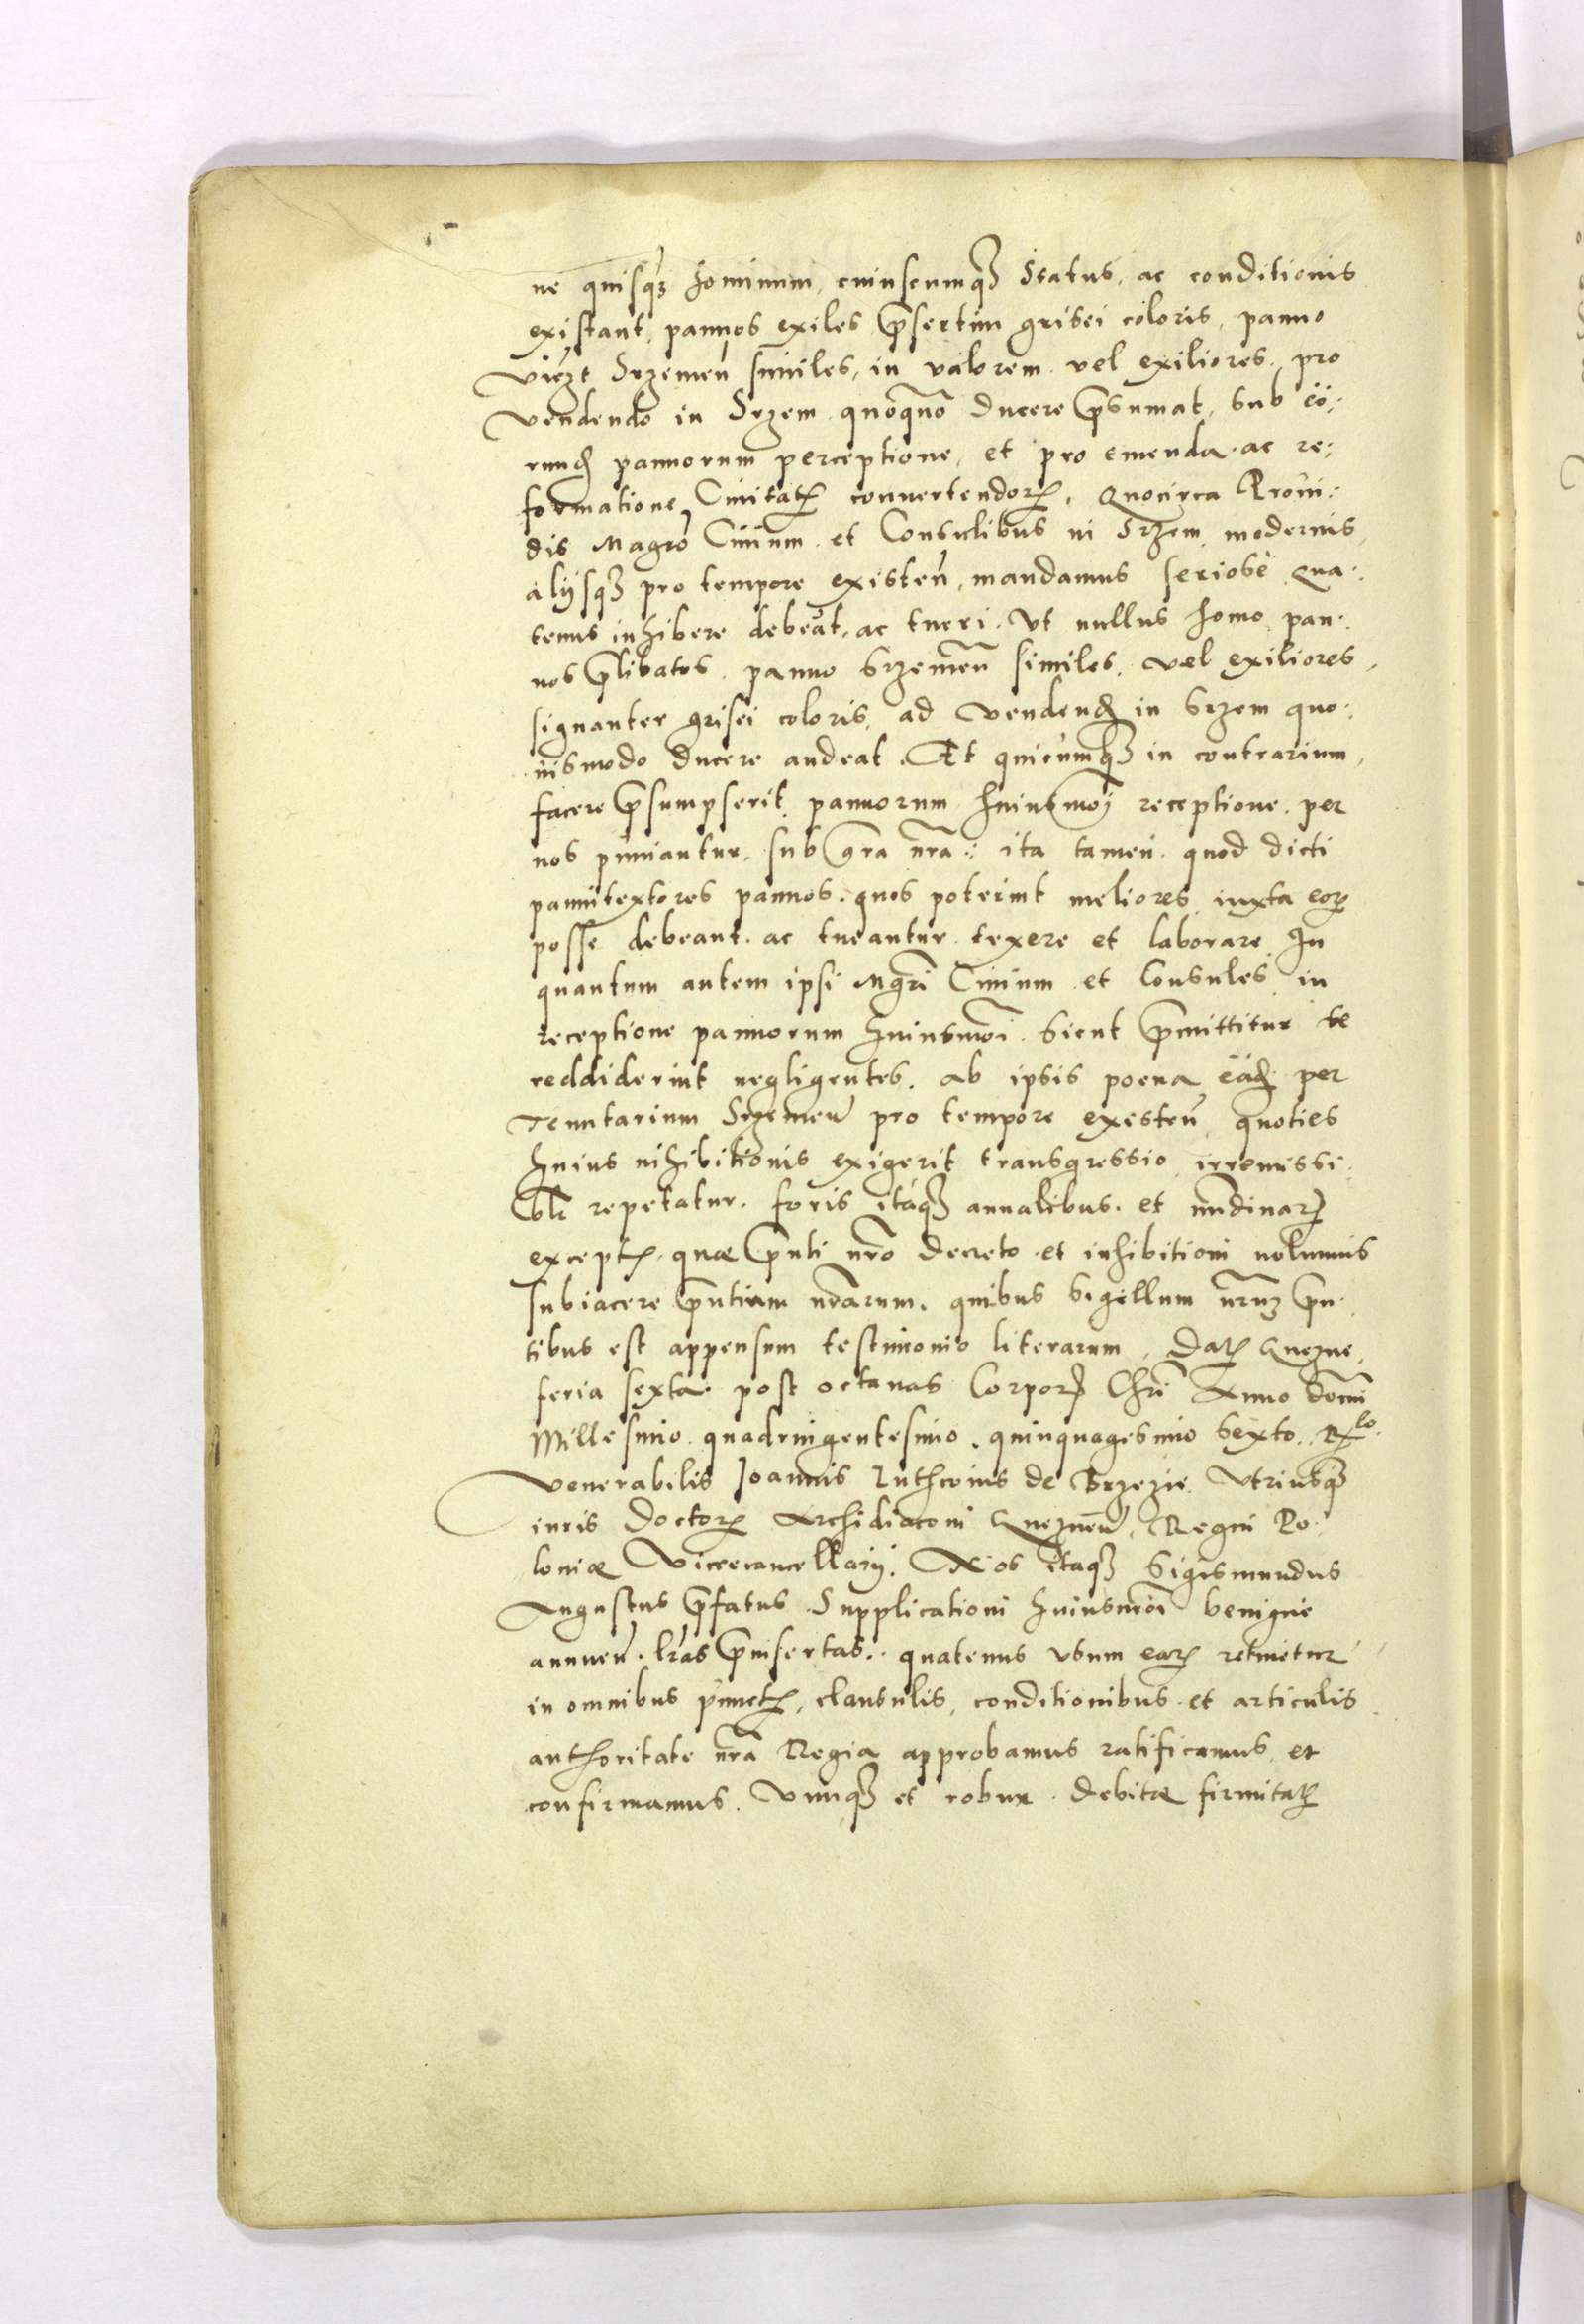 ne quisq̃ hominum, cuiuscumq̃ Status, ac conditionis
existant, pannos exiles p̃sertim grisei coloris, panno
viczt Srzemeñ similes, in valorem vel exiliores, pro
vendendo in Srzem quoquo ducere p̃sumat, sub eo:
rund̃ pannorum perceptione, et pro emenda ac re:
formatione Ciuitatꝭ conuertendorꝝ. Quocirca Proui:
dis Magr̃o Ciuium et Consulibus in Srzem modernis,
alijsq̃ pro tempore existeñ, mandamus seriose Qua:
tenus inhibere debeãt, ac tueri. Vt nullus homo pan:
nos p̃libatos panno Srzemeñ similes, vel exiliores,
signanter grisei coloris, ad vendend̃ in Srzem quo:
uismodo ducere audeat. Et quicumq̃ in contrarium,
facere p̃sumpserit, pannorum huiusmõi receptione per
nos puniantur, sub gr̃a nr̃a: ita tamen quod dicti
pannitextores pannos quos poterint meliores iuxta eorꝝ
posse debeant ac tueantur texere et laborare. In
quantum autem ipsi Mgr̃i Ciuium et Consules in
receptione pannorum huiusmõi sicut p̃mittitur se
reddiderint negligentes, ab ipsis poena ead̃ per
Tenutarium Srzemeñ pro tempore existeñ, quoties
huius inhibitionis exigerit transgressio, irremissi:
bl̃r repetatur. foris itaq̃ annalibus et nundinarꝝ
exceptꝭ, quæ p̃nti nr̃o decreto et inhibitioni nolumus
subiacere p̃ntium nr̃arum, quibus Sigillum nr̃um p̃n:
tibus est appensum testimonio literarum. Datꝭ Gnezne,
feria sexta post octauas Corporꝭ Chr̃i Anno domĩ
Millesimo quadringentesimo quinquagesimo sexto. Rlo
Venerabilis Joannis Luthconis de Brzezie Vtriusq̃
iuris Doctorꝭ Archidiaconi Gnezneñ, Regni Po:
loniæ Vicecancellarij. Nos itaq̃ Sigismundus
Augustus p̃fatus Supplicationi huiusmõi benigne
annueñ. lr̃as p̃insertas. quatenus vsum earꝝ retinetur
in omnibus punctꝭ, clausulis, conditionibus et articulis
authoritate nr̃a Regia approbamus ratificamus et
confirmamus. Vimq̃ et robur debitæ firmitatꝭ